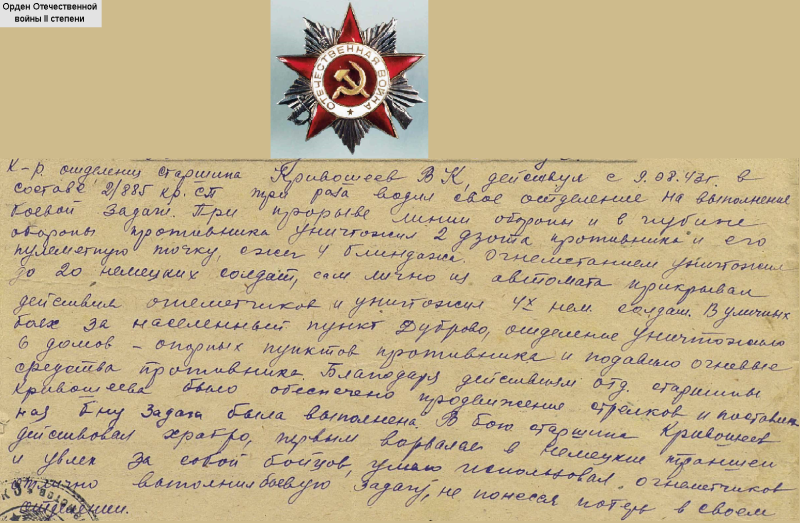 Орден Отечественной
войны II степени
ОТЕЧЕСТВЕННАЯ ВОЙНА
К-р отделения старшина Кривошеев В К, действуя с 9.08.43г. в
составе 2/885 кр. сп три раза водил свое отделение на выполнение
боевой задачи. При прорыве линии обороны и в глубине
обороны противника уничтожил 2 дзота противника и его
пулеметную точку, сжег 4 блиндажа. Огнеметанием уничтожил
до 20 немецких солдат, сам лично из автомата прикрывал
действия огнеметчиков и уничтожил 4х нем. солдат. В уличных
боях за населенный пункт Дуброво, отделение уничтожило
6 домов - опорных пунктов противника и подавило огневые
средства противника. Благодаря действиям отд. старшины
Кривошеева было обеспечено продвижение стрелков и поставлен
ная б-ну задача была выполнена. В бою старшина Кривошеев
действовал храбро, первым ворвался в немецкие траншеи
и увлек за собой бойцов, умело использовал огнеметчиков
отлично выполнил боевую задачу, не понеся потерь в своем
отделении.